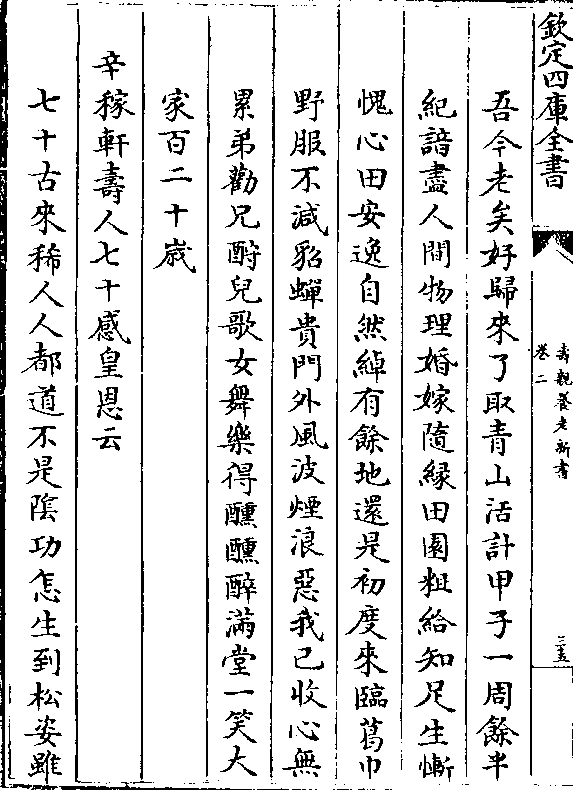 欽定四庫全書
壽親養老新書
卷二
三五
吾今老矣好歸來了取青山活計甲子一周餘半
紀諳盡人間物理婚嫁隨緣田園粗給知足生慚
愧心田安逸自然綽有餘地還是初度來臨葛巾
野服不減貂蟬貴門外風波煙浪惡我已收心無
累弟勸兄酧兒歌女舞樂得醺醺醉滿堂一笑大
家百二十歲
辛稼軒壽人七十感皇恩云
七十古來稀人人都道不是陰功怎生到松姿雖